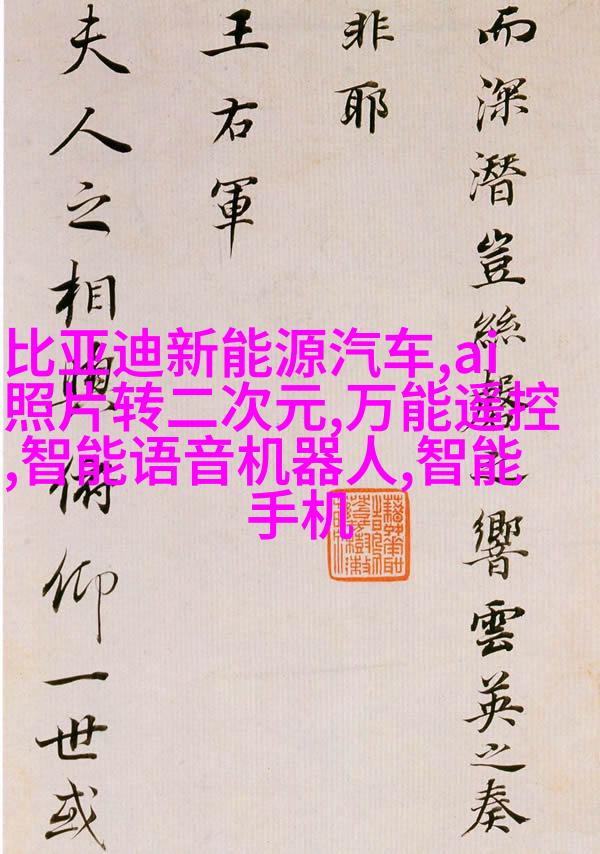 而深潛豈絲之響雲英之奏
非耶
王右軍
夫人之相與俯仰一世或
比亚迪新能源汽车,ai
照片转二次元,万能遥控
,智能语音机器人,智能
手机